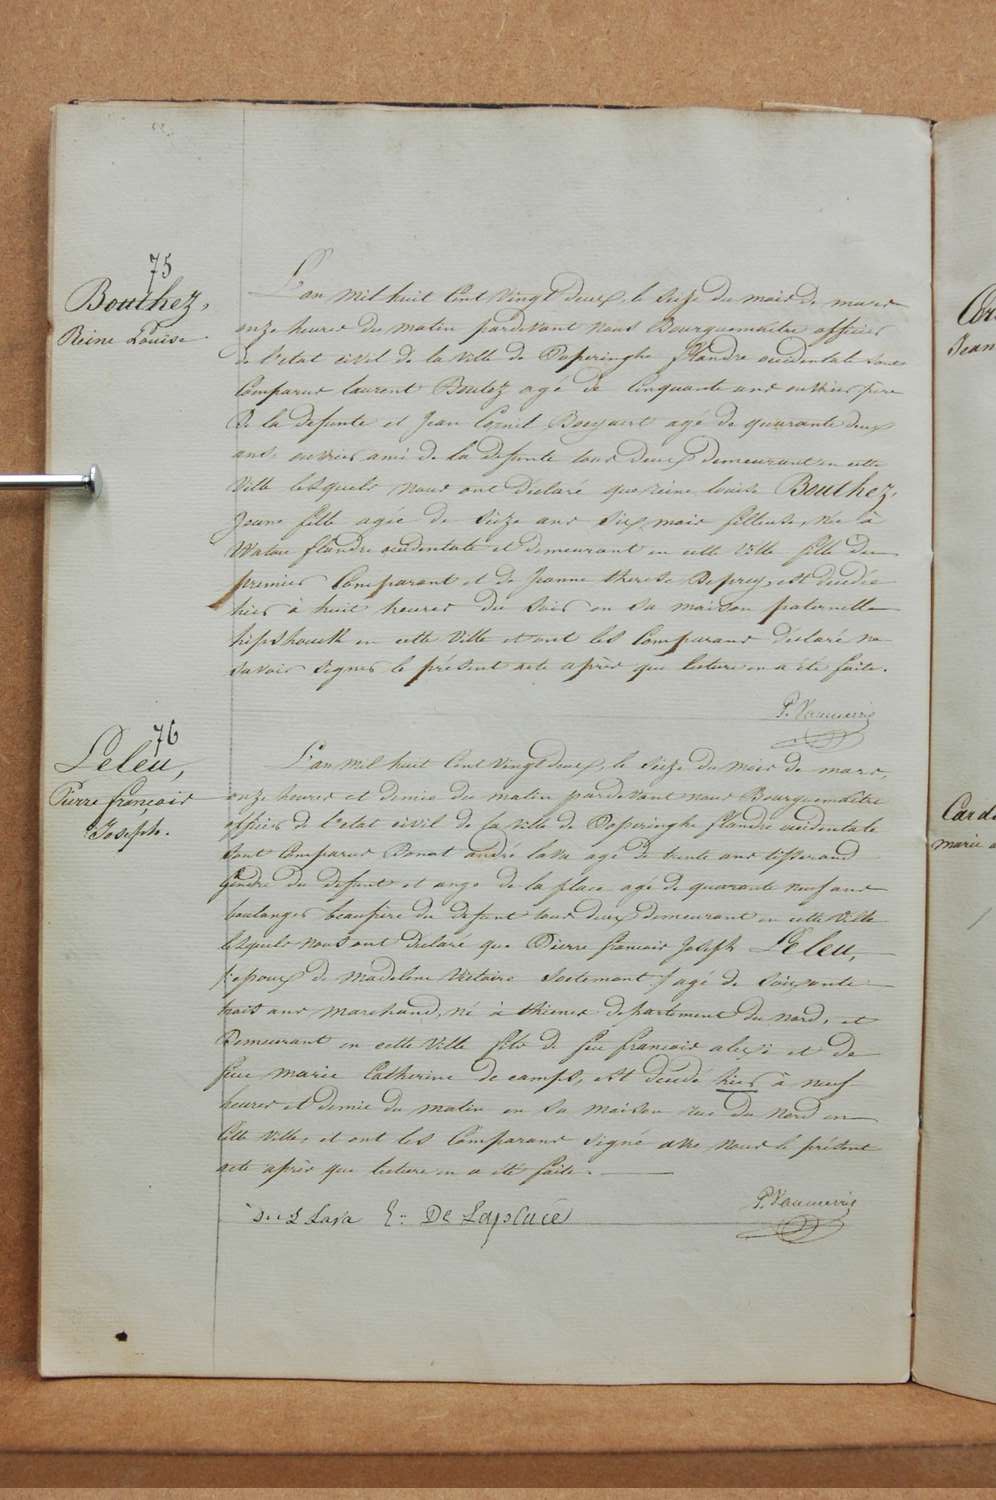 75
Bouthez,
Reine Louise
L'an mil huit Cent Vingt deux, le Seize du mois de mars
onze heures du matin pardevant nous Bourguemaitre officier
de l'etat civil de la Ville de Poperinghe flandre occidentale Sont
Comparus laurent Boutez agé de Cinquante ans ouvrier pere
De la defunte et Jean Cornil agé de quarante deux
ans, ouvrier ami de la defunte tous deux demeurant en cette
Ville lesquels nous ont déclaré que reine louise Bouthez,
Jeune fille agée de Seize ans Six mois fileuse, née à
Watou flandre occidentale et demeurant en cette Ville fille du
premier Comparant et de Jeanne therese Duprez, est decedée
hier à huit heures du Soir en sa maison paternelle
en cette Ville et ont les Comparans déclaré ne
savoir signer le présent acte après que lecture en a été faite.
P. Vanmerris
76
Leleu,
Pierre francois
Joseph.
L'an mil huit Cent Vingt deux, le Seize du mois de mars,
onze heures et demie du matin pardevant nous Bourguemaitre
officier de l'etat civil de la Ville de Poperinghe flandre occidentale
Sont Comparus Donat andré lava agé de trente ans tisserand
Gendre du defunt et ange de la place agé de quarante neuf ans
boulanger beaufrere du defunt tous deux demeurant en cette Ville
lesquels nous ont declaré que Pierre francois Joseph Leleu,
Epoux de Madeleine Victoire agé de Soixante
trois ans marchand, né à thienes département du nord, et
Demeurant en cette Ville fils de feu francois alexi et de
feue marie Catherine de camps, est decedé hier à neuf
heures et demie du matin en Sa maison rue du nord en
Cette Ville, et ont les Comparans Signé avec nous le présent
acte après que lecture en a été faite.
Lava E: De Laplace
P. Vanmerris
Jean
Carde
marie a